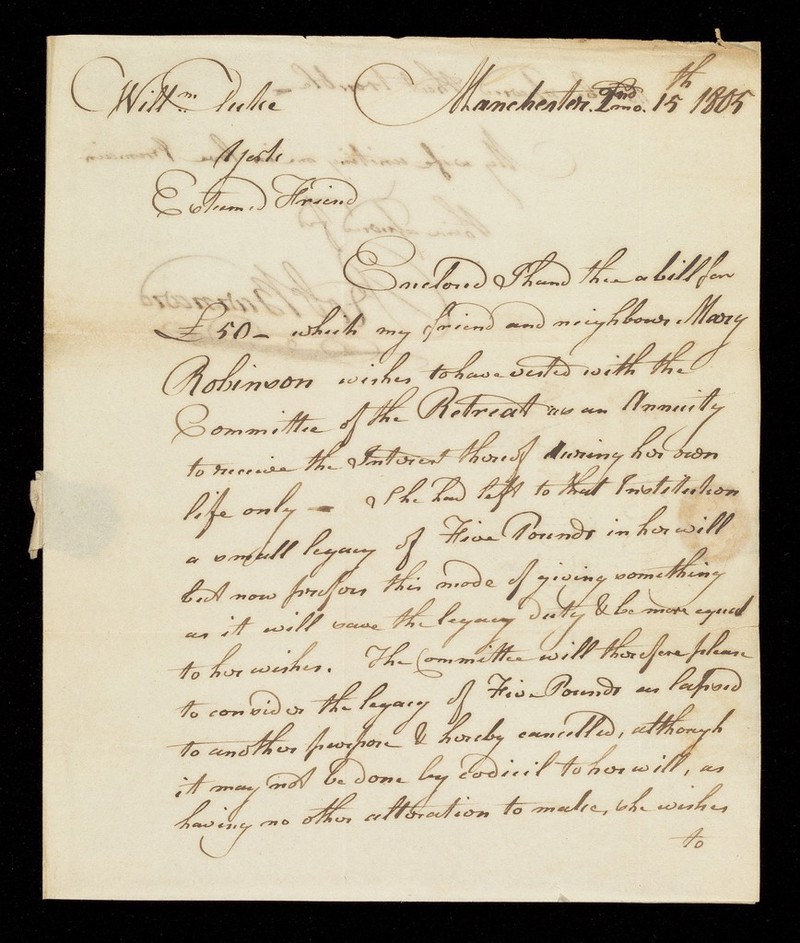 Willm Tuke Manchester. 2nd mo. 15th 1805
York
Esteemd Friend
Enclosed I hand thee a bill for
£50– which my friend and neighbour Mary
Robinson wishes to have vested with the
Committee of the Retreat as an Annuity
to receive the Interest thereof during her own
life only – She had left to that Institution
a small legacy of Five Pounds in her will
but now prefers this mode of giving something
as it will save the legacy duty & be more equal
to her wishes. The Committee will therefore please
to consider the legacy of Five Pounds as lapsed
to another purpose & hereby cancelled, although
it may not be done by codicil to her will, as
having no other alteration to make, she wishes
to